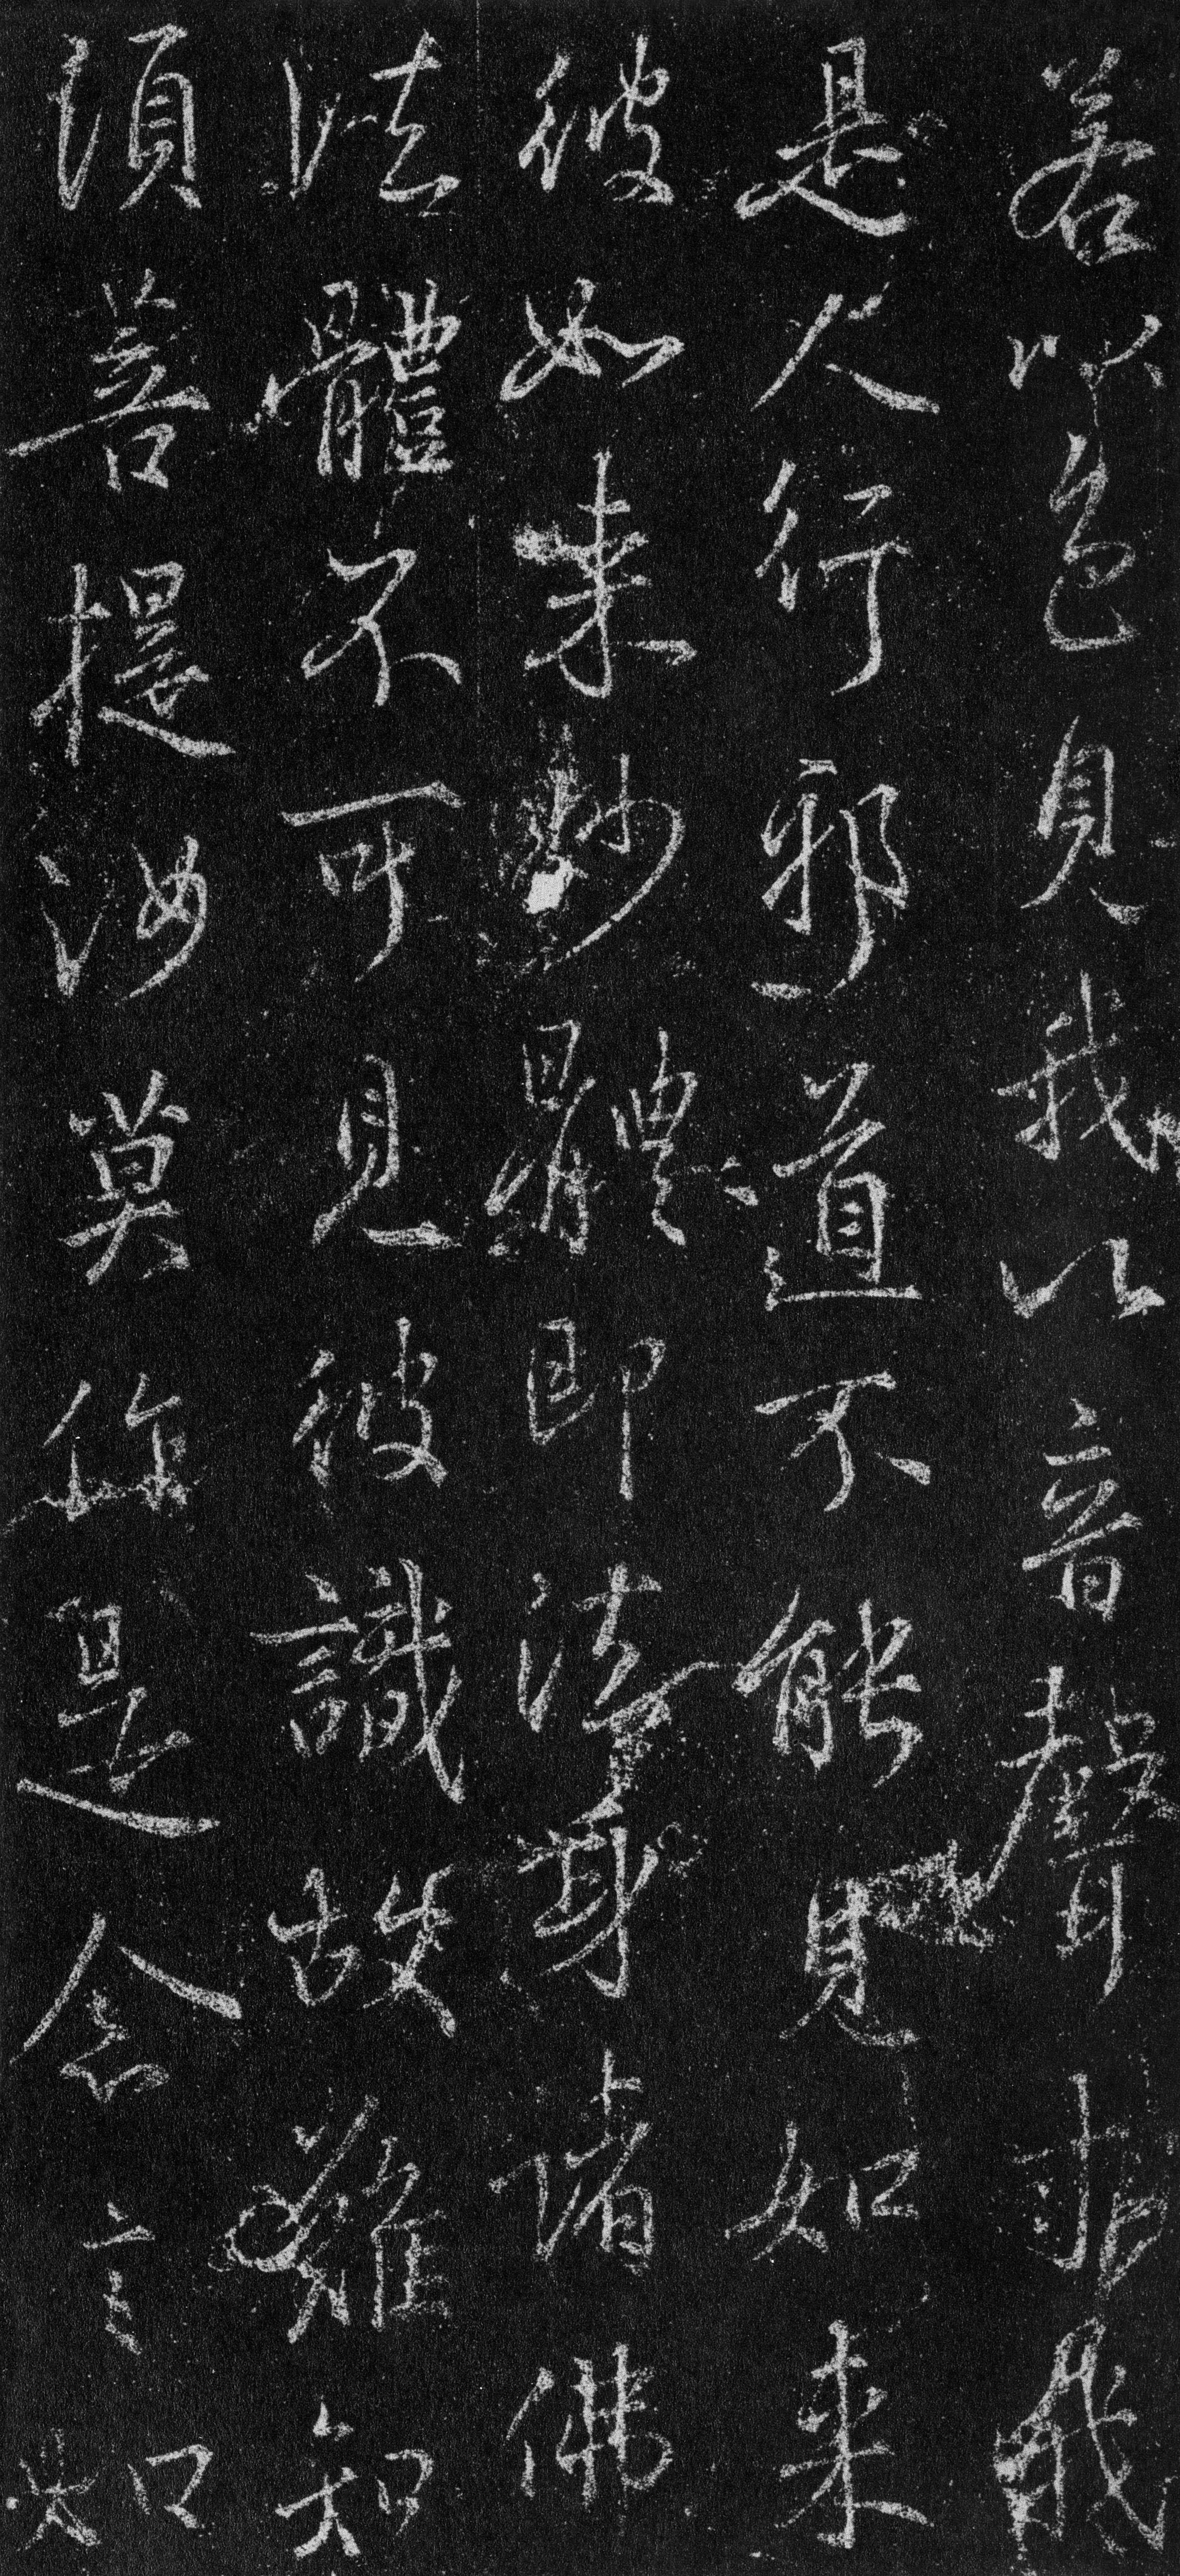 若以色見我以音聲我
是人行邪道不能見如来
彼如来妙體即法身諸佛
法體不可見彼識故難知
須菩提汝莫作是念言如